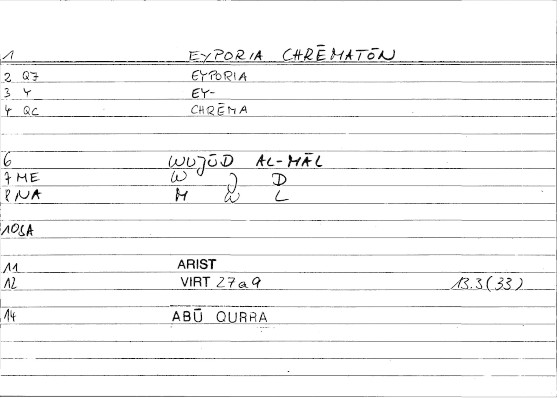 1 EYPORIA CHRĒMATŌN
2 QZ EYPORIA
3 Y EY-
4 QC CHRĒMA
6 WUJŪD AL-MĀL
7 ME W J D
8 NA M W L
10 SA
11 ARIST
12 VIRT 27a9 13.3(33)
14 ABŪ QURRA